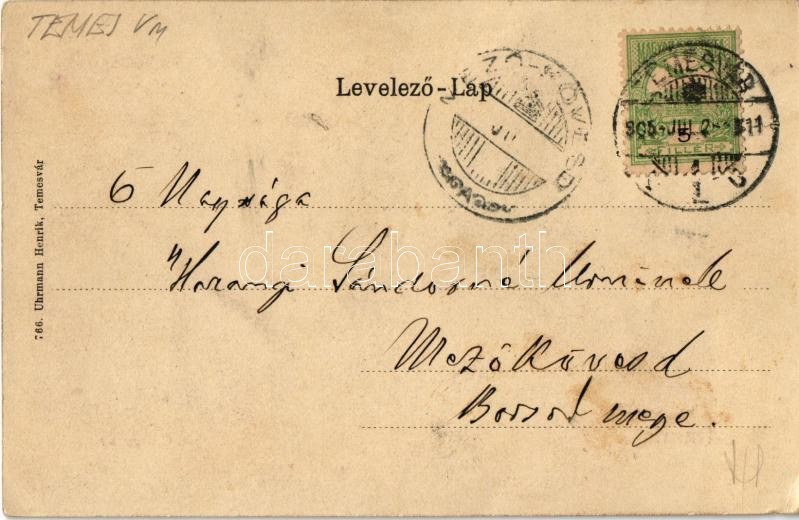 TEMES Vm
Levelező-Lap
MEZŐ-KÖVESD
TEMESVÁR
905 JUL 2
5
FILLÉR
Ő Nagysága
Harangi Sándorné Urnőnek
Mezőkövesd
Borsod megye.
766. Uhrmann Henrik, Temesvár
darabanth